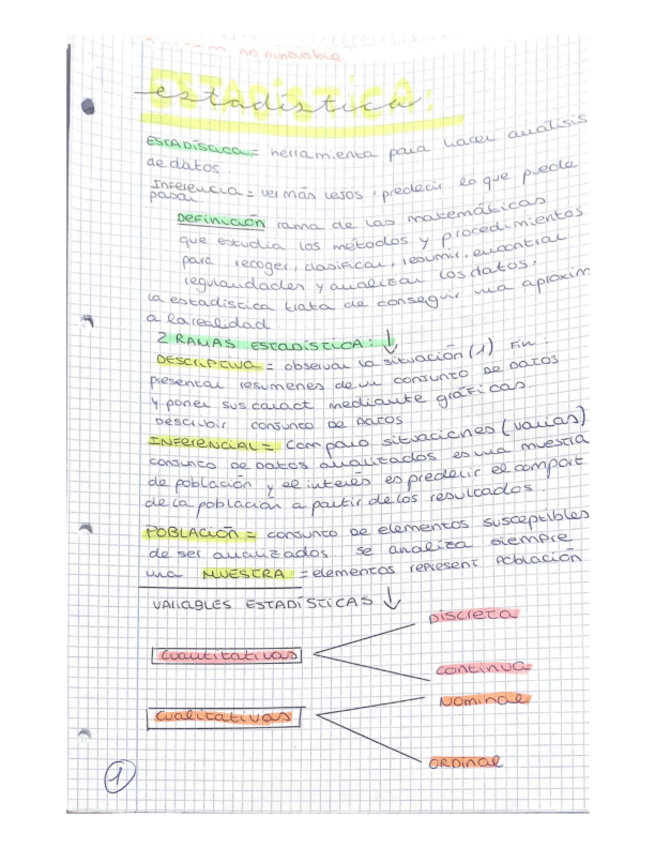 no puntuable
estadística:
ESTADÍSTICA = herramienta para hacer análisis
de datos.
Inferencia = ver más lejos, predecir lo que puede
pasar
DEFINICIÓN rama de las matemáticas
que estudia los métodos y procedimientos
para recoger, clasificar, resumir, encontrar
regularidades y analizar los datos.
la estadística trata de conseguir una aproxim
a la realidad
2 RAMAS ESTADÍSTICA: ↓
DESCRIPTIVA = observar la situación (1) Fin:
presentar resúmenes de un conjunto de datos
y poner sus caract mediante gráficas
Describir conjunto de datos
INFERENCIAL = Comparo situaciones (varias)
conjunto de datos analizados es una muestra
de población y el interés es predecir el comport
de la población a partir de los resultados.
POBLACIÓN = conjunto de elementos susceptibles
de ser analizados se analiza siempre
una MUESTRA = elementos represent población
VARIABLES ESTADÍSTICAS ↓
Discreta
Cuantitativas
continua
Nominal
Cualitativas
ORDinal
1